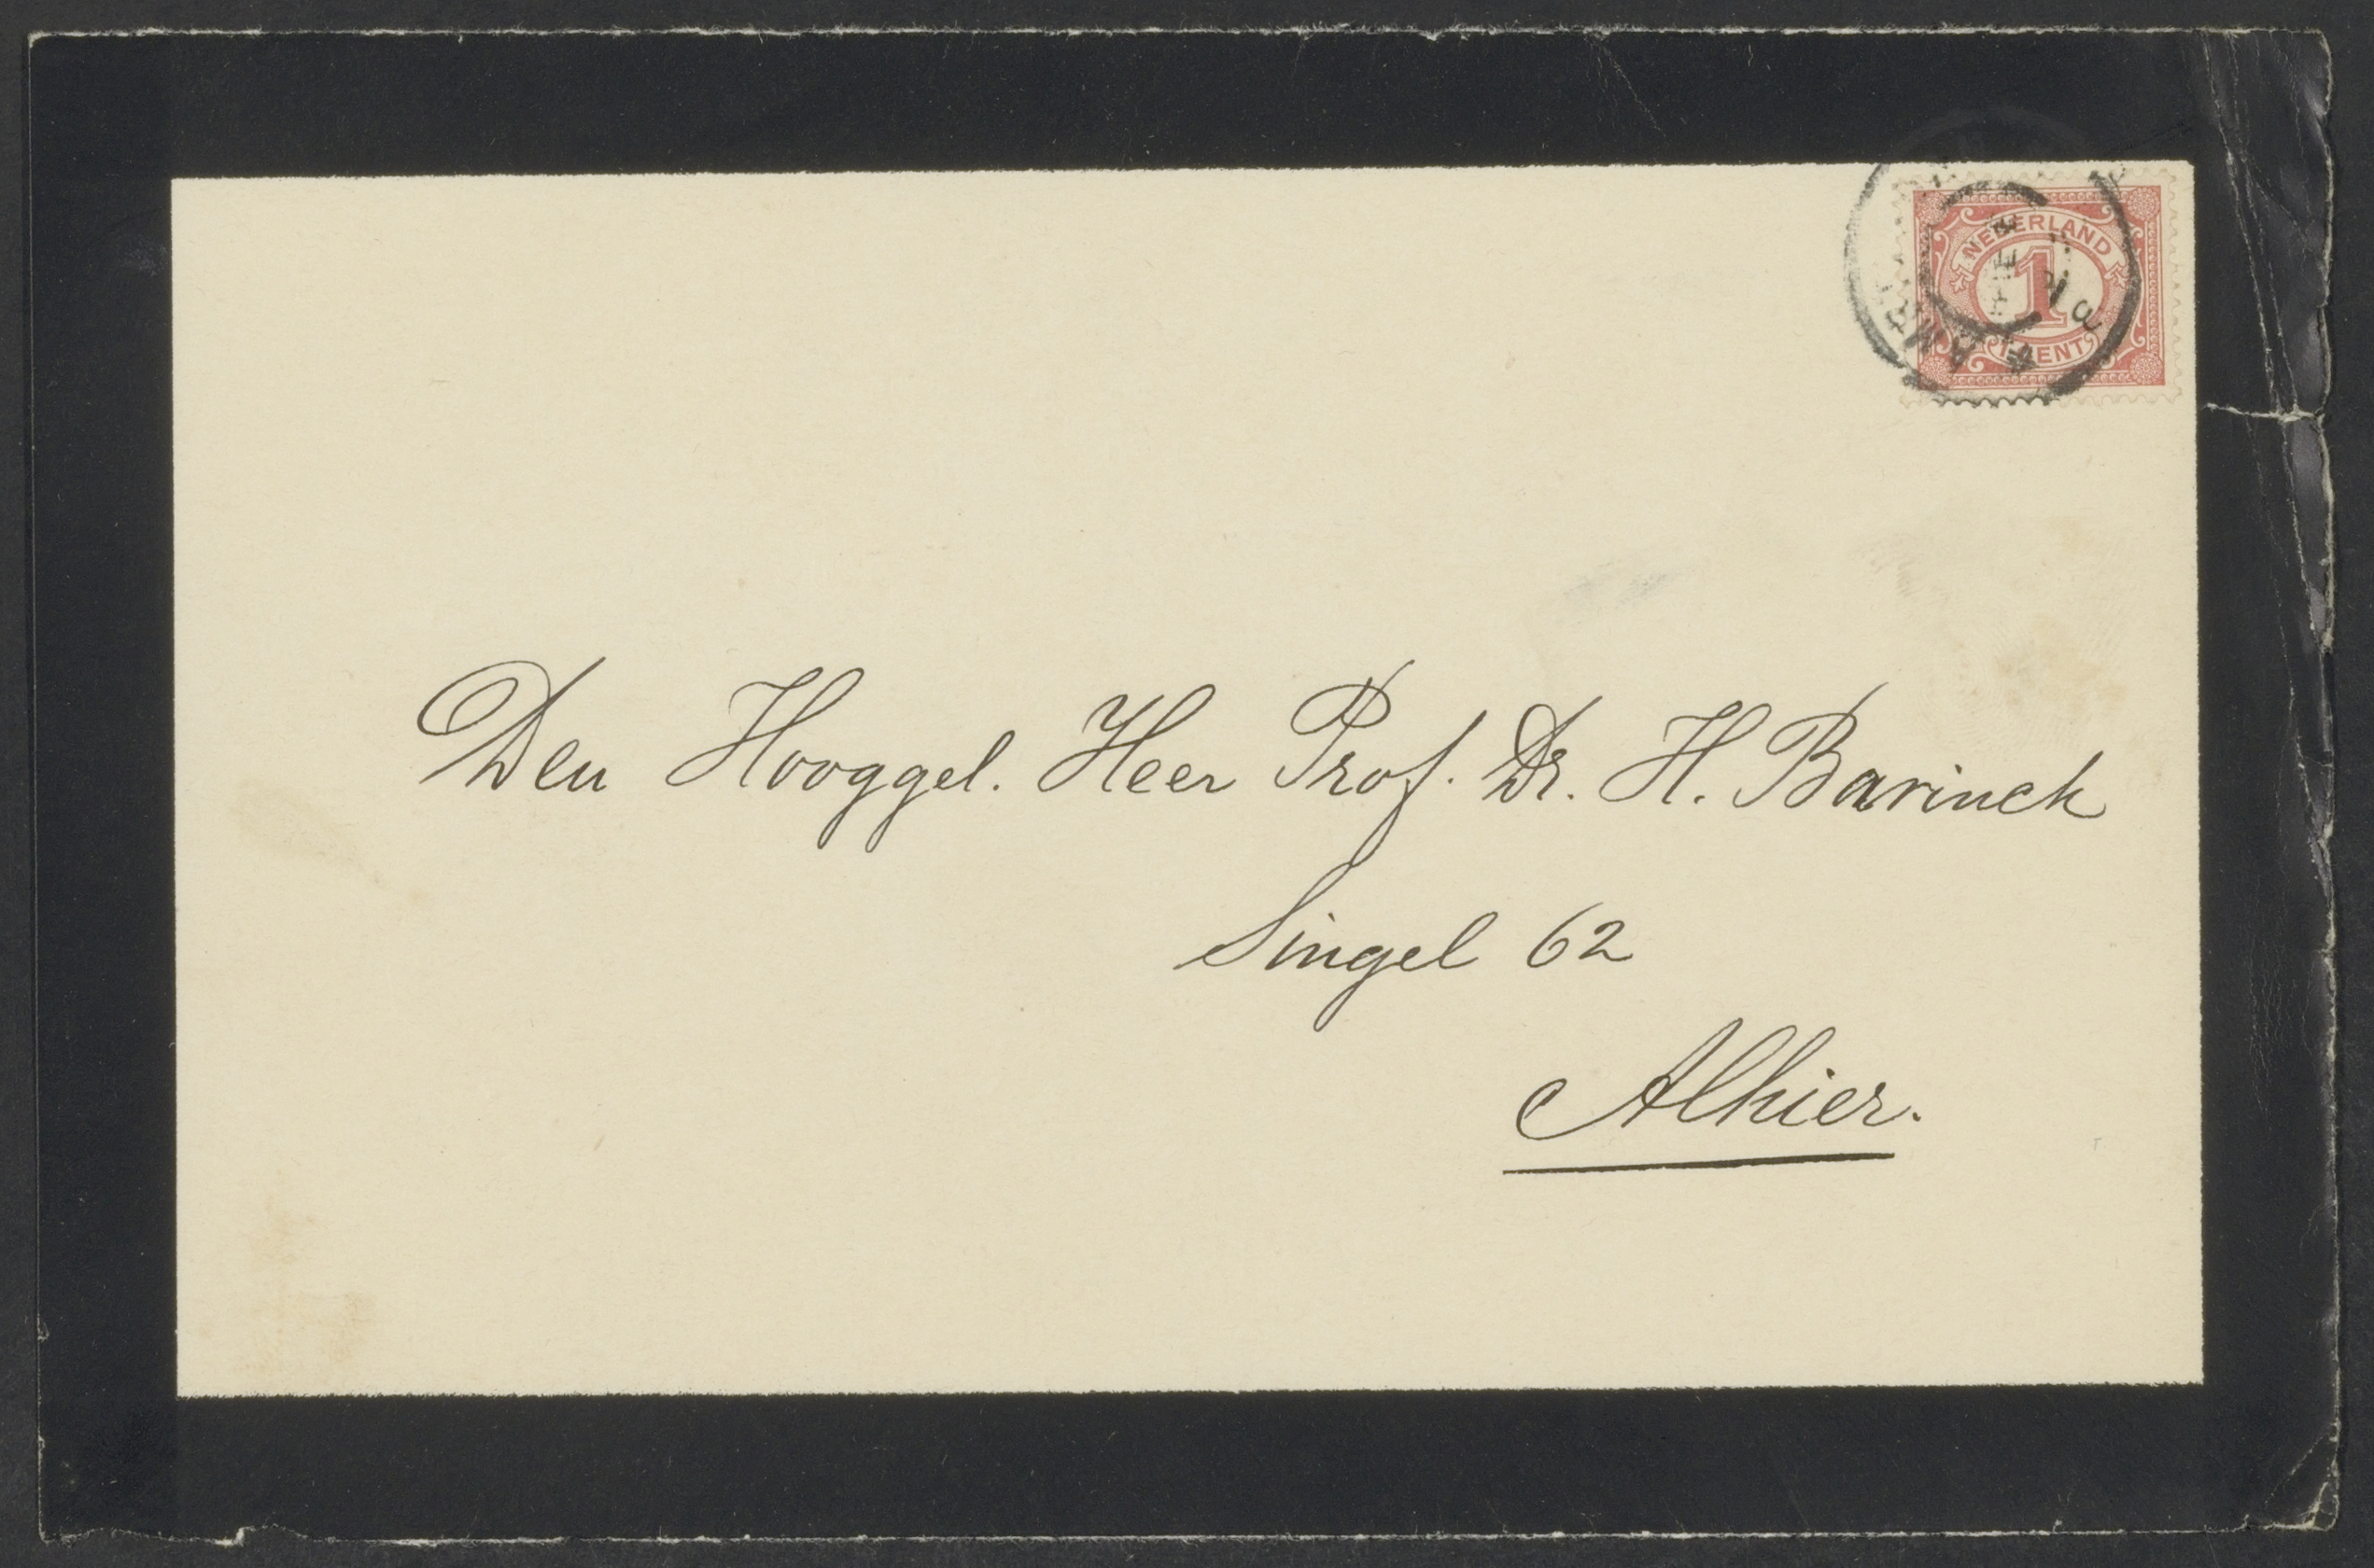 NEDERLAND
1
1 CENT
Den Hooggel. Heer Prof. Dr. H. Bavinck
Singel 62
Alhier.